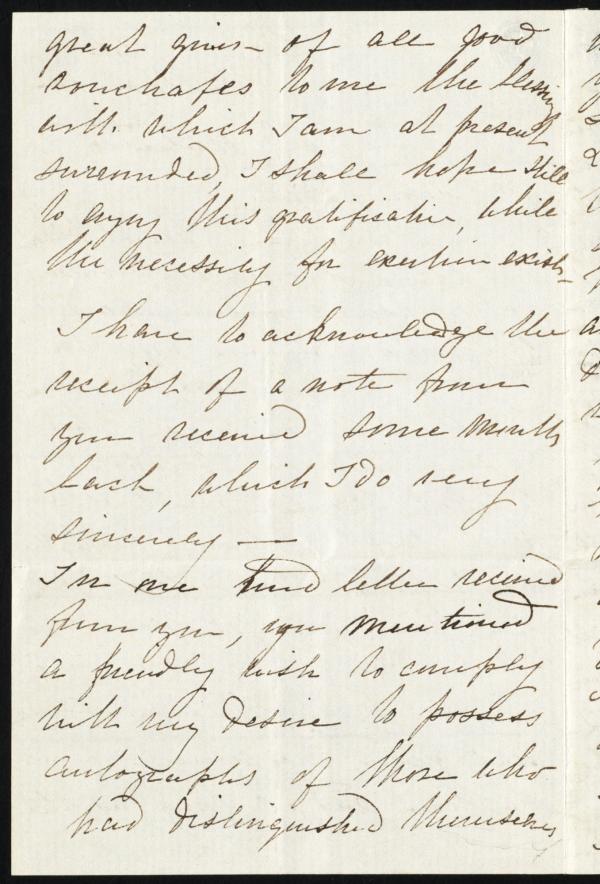 great giver of all good
vouchafes to me the blessings
with which I am at present
surrounded, I shall hope still
to enjoy this gratification, while
the necessity for exertion exists
I have to acknowledge the
receipt of a note from
you received some months
back, which I do very
sincerely —
In one kind letter received
from you, you mentioned
a friendly wish to comply
with my desire to possess
autographs of those who
had distinguished themselves